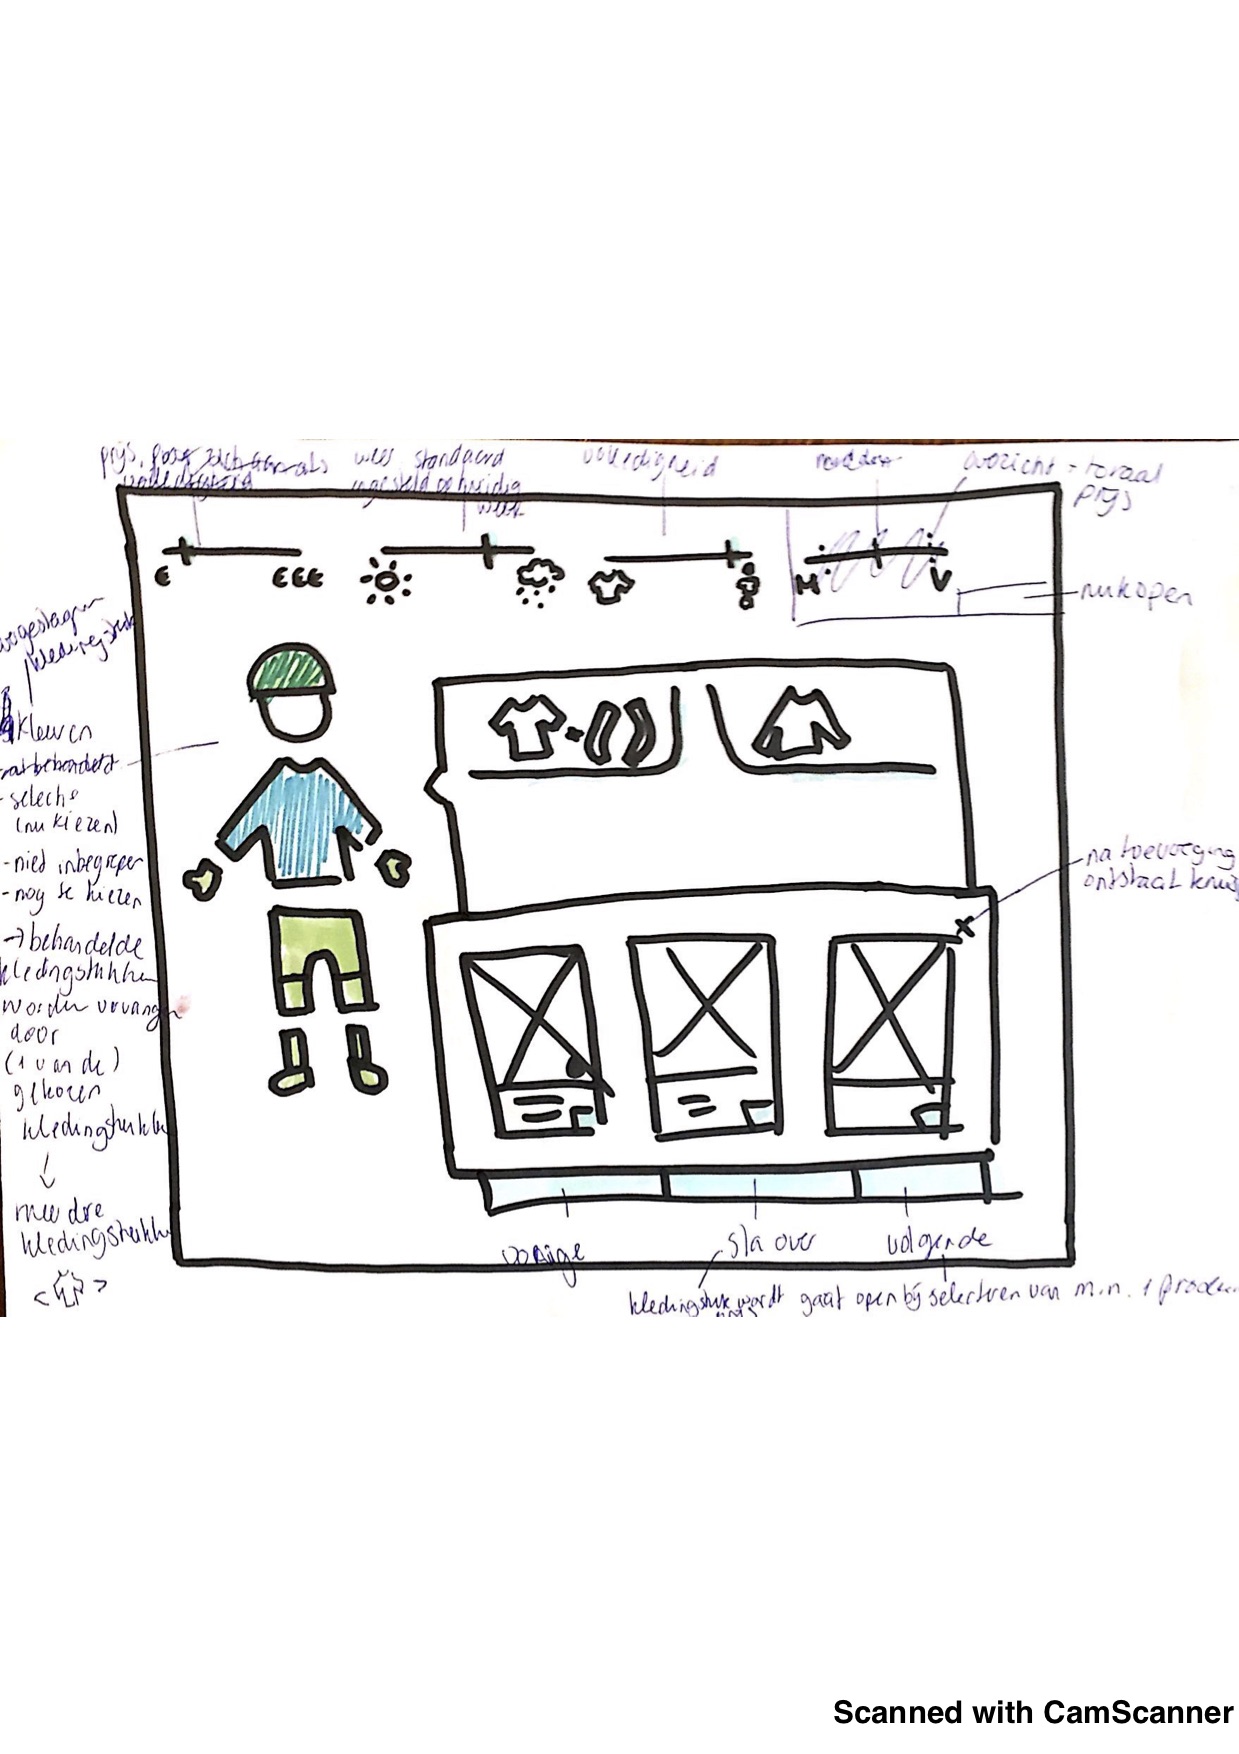 prijs. past zich aan als
weer standaard
ingesteld op huidig
weer
volledigheid
overzicht - totaal
prijs
€
€€€
M
V
nu kopen
kledingstuk
kleuren
- selectie
(nu kiezen)
- niet inbegrepen
- nog te kiezen
→ behandelde
kledingstukken
worden vervangen
door
(1 van de)
gekozen
kledingstukken
↓
meerdere
kledingstukken
< >
na toevoeging
ontstaat kruis
x
vorige
sla over
volgende
kledingstuk wordt
gaat open bij selecteren van min. 1 produ
Scanned with CamScanner